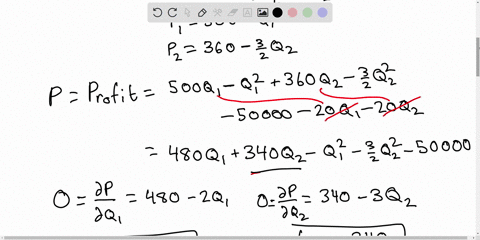 P₂ = 360 - 3/2 Q₂
P = Profit = 500Q₁ - Q₁² + 360Q₂ - 3/2 Q₂²
-50000 - 20Q₁ - 20Q₂
= 480Q₁ + 340Q₂ - Q₁² - 3/2 Q₂² - 50000
0 = ∂P/∂Q₁ = 480 - 2Q₁ 0 = ∂P/∂Q₂ = 340 - 3Q₂